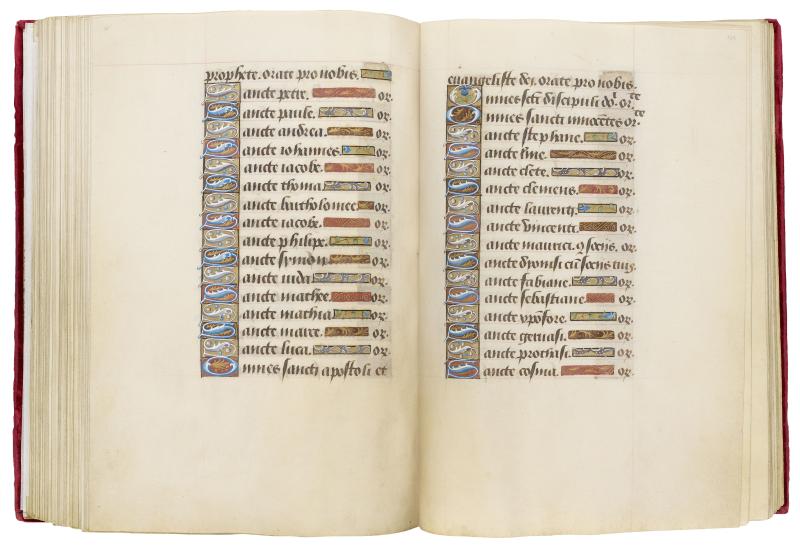 prophete. orate pro nobis.
Sancte petre. or.
Sancte paule. or.
Sancte andrea. or.
Sancte iohannes. or.
Sancte iacobe. or.
Sancte thoma. or.
Sancte bartholomee. or.
Sancte iacobe. or.
Sancte philipe. or.
Sancte symon. or.
Sancte iuda. or.
Sancte mathee. or.
Sancte mathia. or.
Sancte marce. or.
Sancte luca. or.
Omnes sancti apostoli et
euangeliste dei. orate pro nobis.
Omnes scti discipuli do. orte
Omnes sancti innocetes orte
Sancte stephane. or.
Sancte line. or.
Sancte clete. or.
Sancte clemens. or.
Sancte laurenti. or.
Sancte vincenti. or.
Sancte maurici. or.
Sancte dionisi cu sociis tuis.
Sancte fabiane. or.
Sancte sebastiane. or.
Sancte xpofore. or.
Sancte geruasi. or.
Sancte prothasi. or.
Sancte cosma. or.